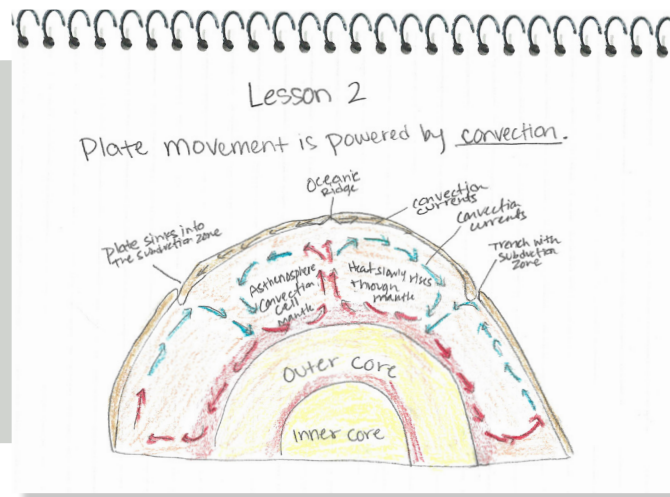 Lesson 2
Plate movement is powered by convection.
Oceanic
Ridge
convection
currents
convection
currents
Plate sinks into
the subduction zone
Trench with
subduction
zone
Asthenosphere
Convection
cell
mantle
Heat slowly rises
through
mantle
Outer core
Inner core